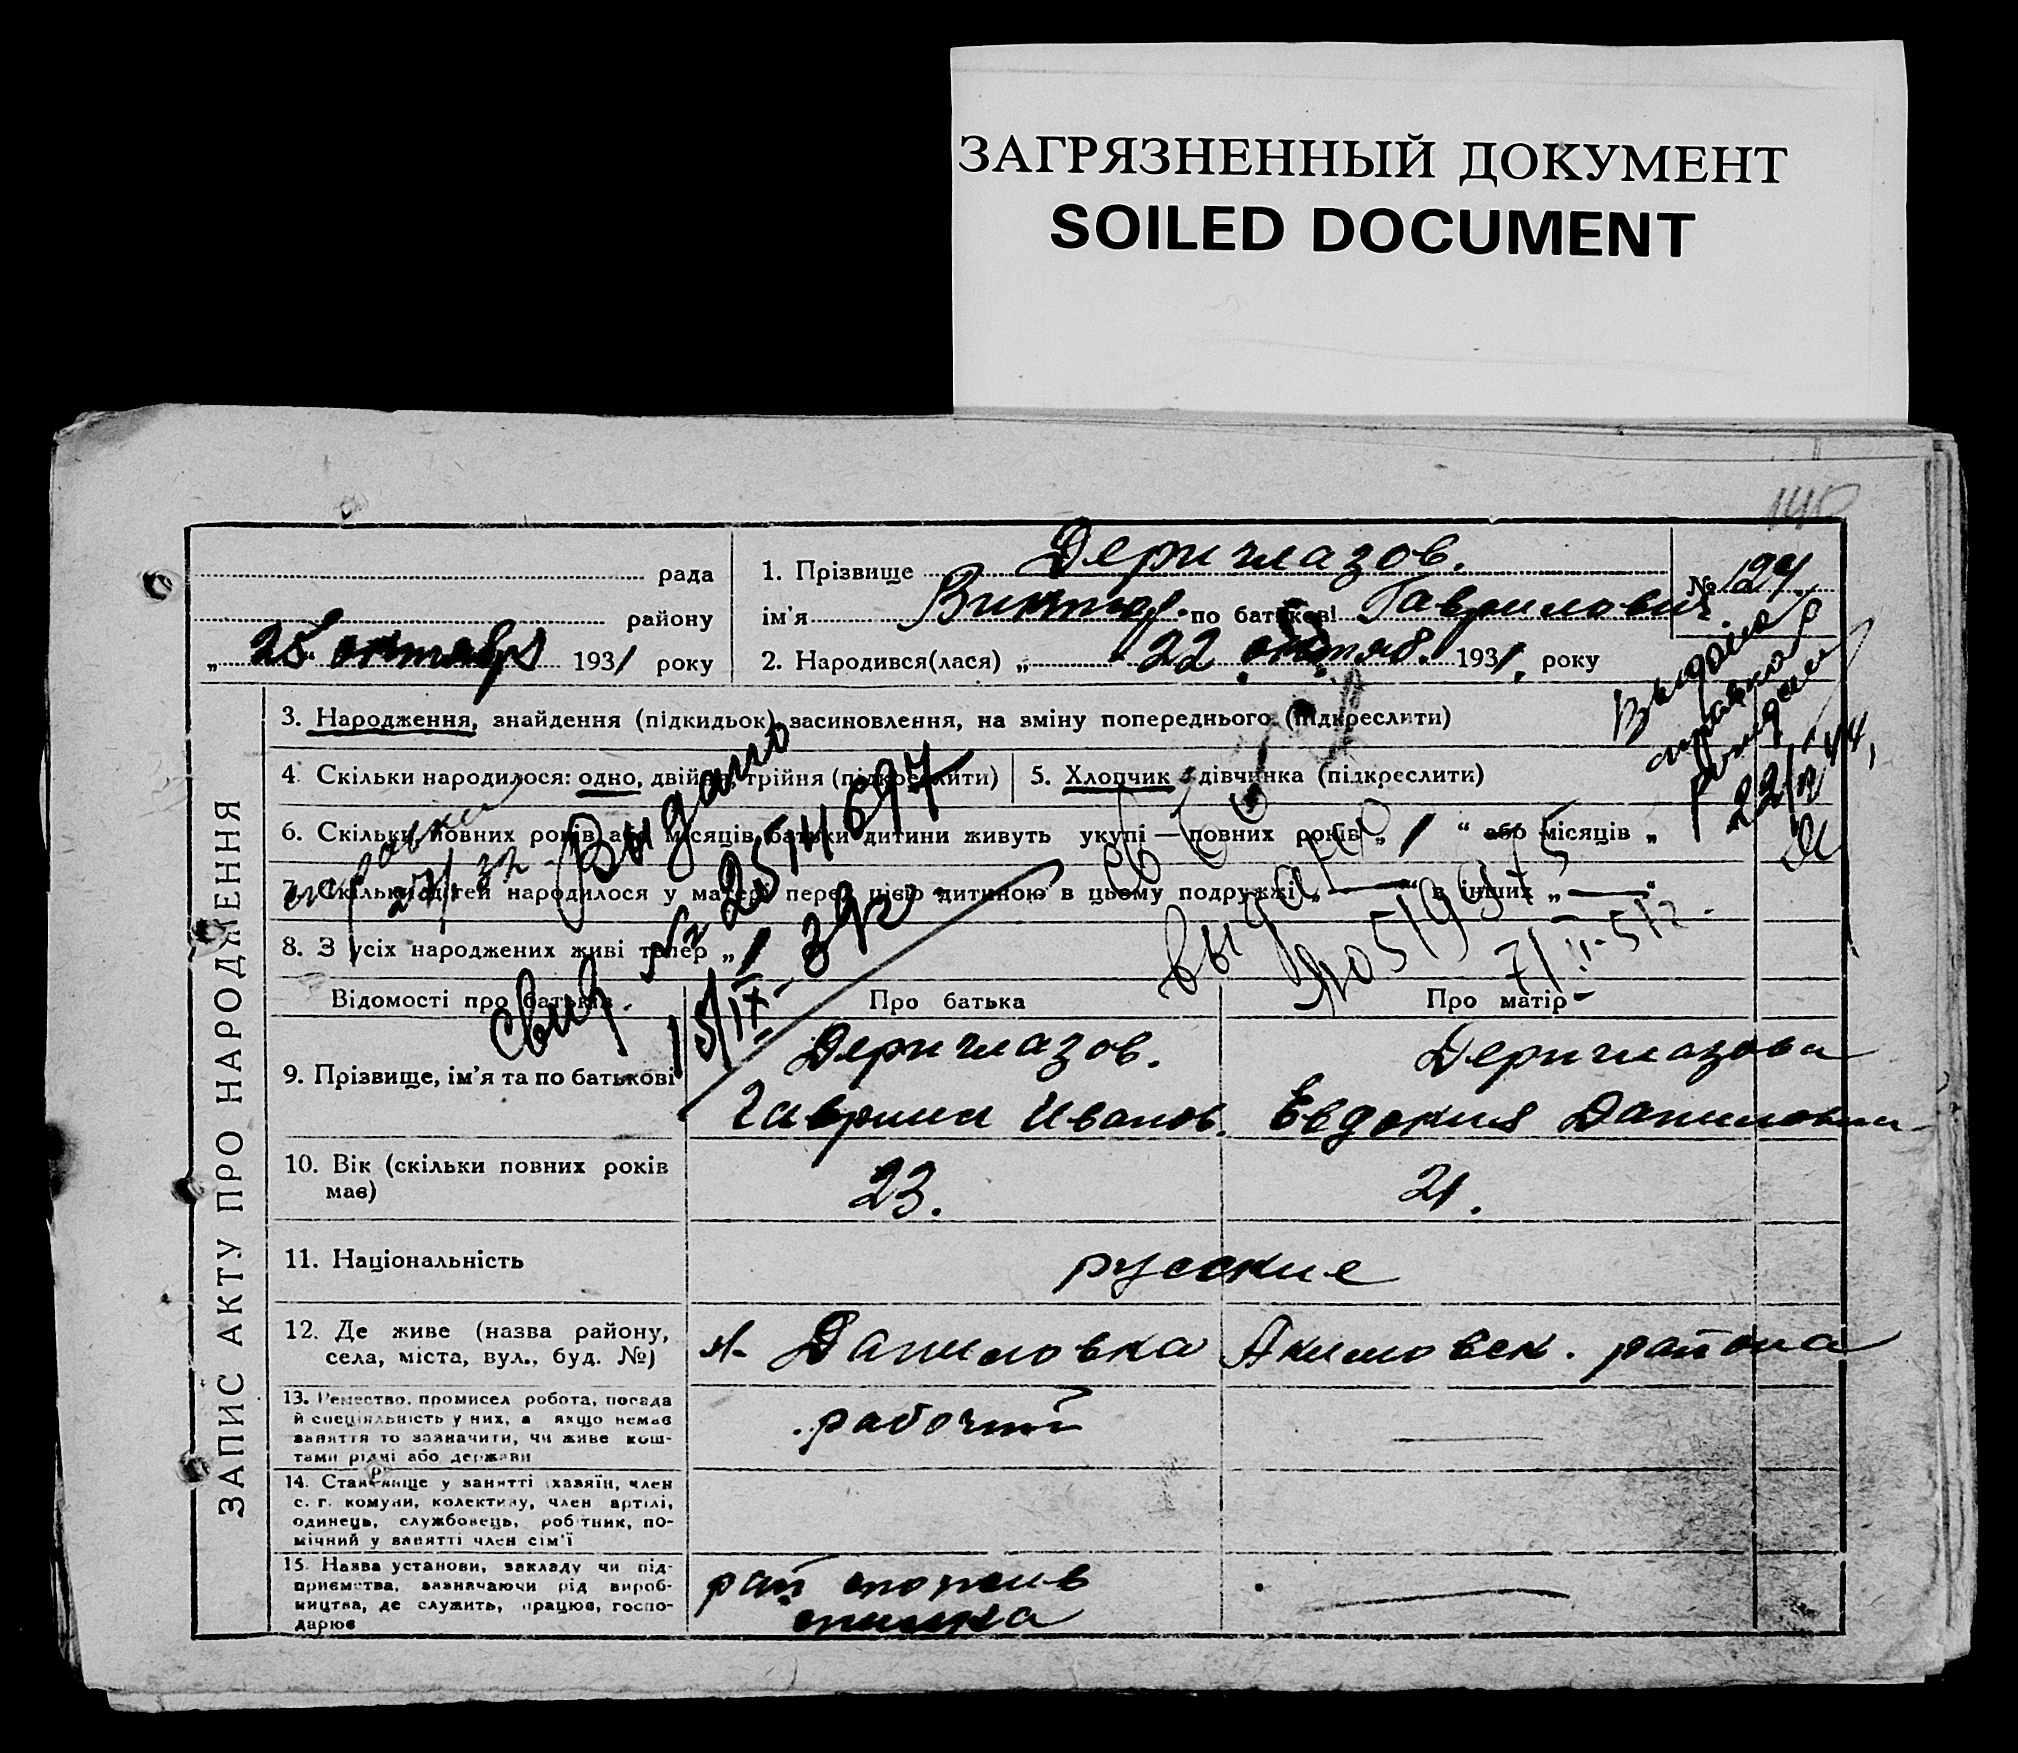 ЗАГРЯЗНЕННЫЙ ДОКУМЕНТ
SOILED DOCUMENT
ЗАПИС АКТУ ПРО НАРОДЖЕННЯ
рада
району
„25“ октября 1931 року
1. Прізвище Дериглазов.
ім'я Виктор. по батькові Гаврилович.
2. Народився(лася) „22 октяб. 1931. року
№ 124
Выдана
справка
22/
3. Народження, знайдення (підкидьок) засиновлення, на зміну попереднього (підкреслити)
4. Скільки народилося: одно, двійня, трійня (підкреслити)
5. Хлопчик дівчинка (підкреслити)
6. Скільки повних років або місяців батьки дитини живуть укупі — повних років „1“ або місяців „
7. Скільки дітей народилося у матері перед цією дитиною в цьому подружжі „—“ в інших „—“
8. З усіх народжених живі тепер „1
Выдано
свид
15/IX- 39г
выдано
7/II-51г.
Відомості про батьків
Про батька
Про матір
9. Прізвище, ім'я та по батькові
Дериглазов.
Гаврил Иванов.
Дериглазова
Евдокия Даниловна
10. Вік (скільки повних років має)
23.
21.
11. Національність
русские
12. Де живе (назва району, села, міста, вул., буд. №)
Даниловка Акимовск. района
13. Ремество, промисел робота, посада й спеціяльність у них, а якщо немає заняття то зазначити, чи живе коштами рідні або держави
рабочий
14. Становище у занятті (хазяїн, член с. г. комуни, колективу, член артілі, одинець, службовець, робітник, помічний у занятті член сім'ї
15. Назва установи, закладу чи підприємства, зазначаючи рід виробництва, де служить, працює, господарює
рай